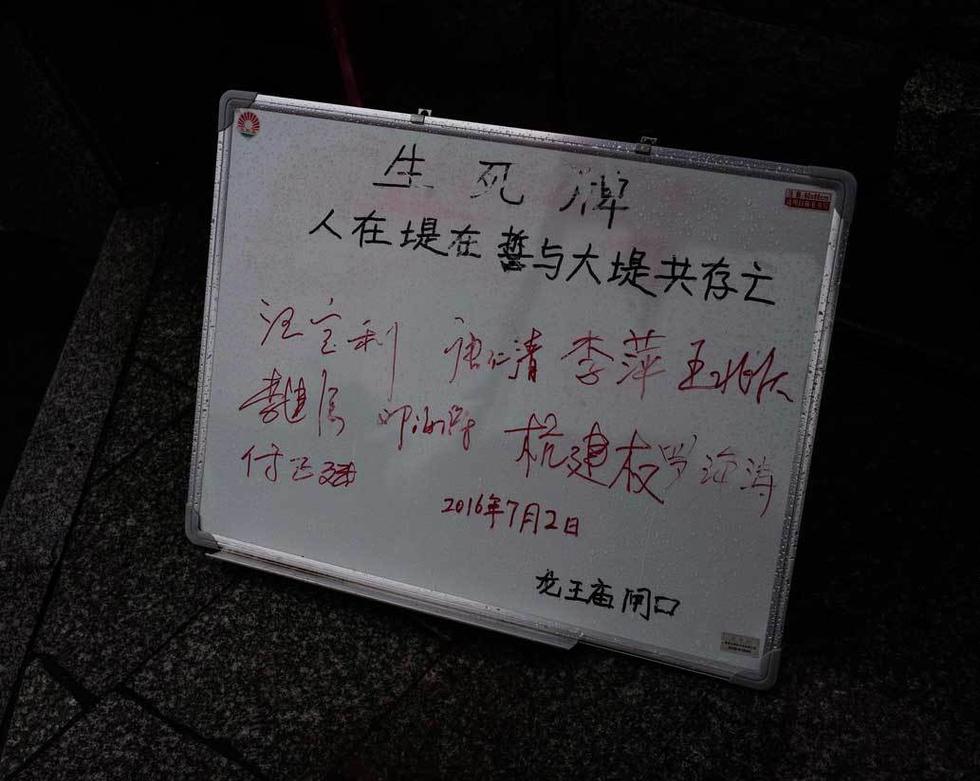 生死牌
人在堤在 誓与大堤共存亡
汪宝利 唐仁清 李萍
杭建权 罗海涛
付正斌
2016年7月2日
龙王庙闸口